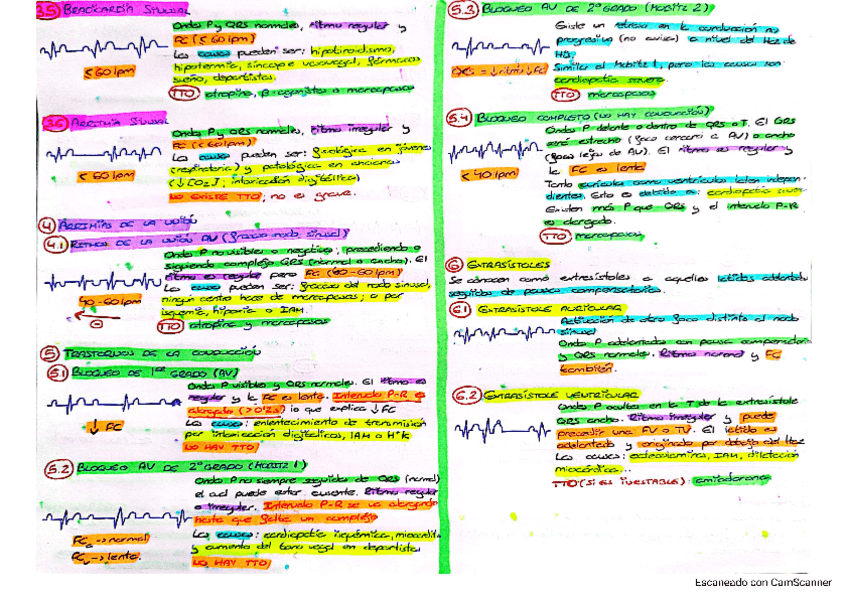 3.5 BRADICARDIA SINUSAL
Onda P y QRS normales, ritmo regular y
FC (≤60 lpm)
Las causas pueden ser: hipotiroidismo,
hipotermia, síncope vasovagal, fármacos
sueño, deportistas.
<60 lpm
TTO atropina, β-agonistas o marcapasos
3.6 ARRITMIA SINUSAL
Onda P y QRS normales, ritmo irregular y
FC (<60 lpm)
Las causas pueden ser: fisiológica en jóvenes
(respiratoria) y patológica en ancianos
(↓[O2], intoxicación digitálica)
<60 lpm
NO EXISTE TTO; no es grave.
4 ARRITMIAS DE LA UNIÓN
4.1 RITMOS DE LA UNIÓN AV (fracaso nodo sinusal)
Onda P no visibles o negativas, precediendo o
siguiendo complejo QRS (normal o ancho). El
ritmo es regular pero FC (40-60 lpm)
Las causas pueden ser: fracaso del nodo sinusal,
ningún centro hace de marcapasos; o por
isquemia, hipoxia o IAM.
40-60 lpm
TTO atropina y marcapasos
5 TRASTORNOS DE LA CONDUCCIÓN
5.1 BLOQUEO DE 1er GRADO (AV)
Onda P visibles y QRS normales. El ritmo es
regular y la FC es lenta. Intervalo P-R es
alargado (>0'2s) lo que explica ↓FC
Las causas: enlentecimiento de transmisión
por intoxicación digitálicos, IAM o H+K
↓ FC
NO HAY TTO
5.2 BLOQUEO AV DE 2º GRADO (MOBITZ 1)
Onda P no siempre seguidas de QRS (normal)
el cual puede estar ausente. Ritmo regular
o irregular. Intervalo P-R se va alargando
hasta que falte un complejo
Las causas: cardiopatía isquémica, miocarditis
y aumento del tono vagal en deportistas
FCa → normal
FCv → lenta.
NO HAY TTO
5.3 BLOQUEO AV DE 2º GRADO (MOBITZ 2)
Existe un retraso en la conducción no
progresiva (no avisa) a nivel del Haz de
His.
Similar al Mobitz 1, pero las causas son
cardiopatía severa.
QRS = ↓ritmo ↓FC
TTO marcapasos
5.4 BLOQUEO COMPLETO (NO HAY CONDUCCIÓN)
Onda P delante o dentro de QRS o T. El QRS
será estrecho (foco cercano a AV) o ancho
(foco lejos de AV). El ritmo es regular y
la FC es lenta
Tanto aurícula como ventrículo laten indepen-
dientes. Esto es debido a: cardiopatía
Existen más P que QRS y el intervalo P-R
es alargado.
<40 lpm
TTO marcapasos
6 EXTRASÍSTOLES
Se conocen como extrasístoles a aquellos latidos adelantados
seguidos de pausa compensatoria.
6.1 EXTRASÍSTOLE AURICULAR
Activación de otro foco distinto al nodo
sinusal
Onda P adelantadas con pausa compensadora
y QRS normales. Ritmo normal y FC
también.
6.2 EXTRASÍSTOLE VENTRICULAR
Onda P ocultas en la T de la extrasístole
QRS ancho. Ritmo irregular y puede
preceder una FV o TV. El latido es
adelantado y originado por debajo del Haz
Las causas: catecolamina, IAM, dilatación
miocárdica...
TTO (SI ES INESTABLE): amiodarona
Escaneado con CamScanner